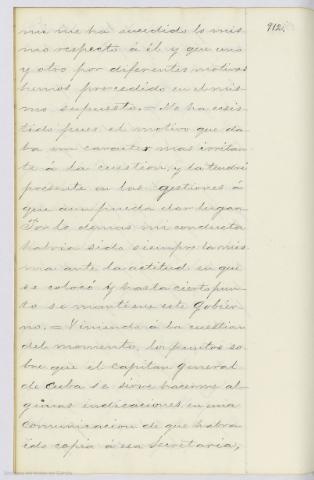 912.
mi me ha sucedido lo mis
mo respecto á él y que uno
y otro por diferentes motivos
hemos procedido en el mis
mo supuesto. = No ha ecsis
tido pues el motivo que da
ba un caracter mas irritan
te á la cuestion, y la tendré
presente en las gestiones á
que aun pueda dar lugar.
Por lo demas mi conducta
habria sido siempre la mis
ma ante la actitud en que
se colocó y hasta cierto pun
to se mantiene este Gobier
no. = Viniendo á la cuestion
del momento, los puntos so
bre que el Capitan General
de Cuba se sirve hacerme al
gunas indicaciones en una
comunicacion de que habrá
ido copia á esa Secretaria,